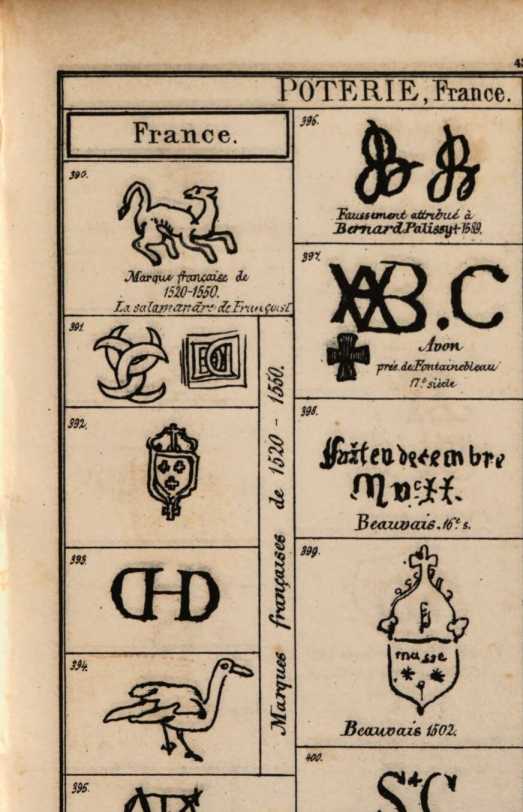 POTERIE, France.
France.
390.
Marque française de
1520-1550.
La salamandre de François I
391.
392.
393.
394.
395.
Marques françaises de 1520 - 1550.
396.
Faussement attribué à
Bernard Palissy † 1589.
397.
AB.C
Avon
près de Fontainebleau
17.e siècle
398.
decembre
Beauvais. 16.e s.
399.
masse
Beauvais 1502.
400.
S C